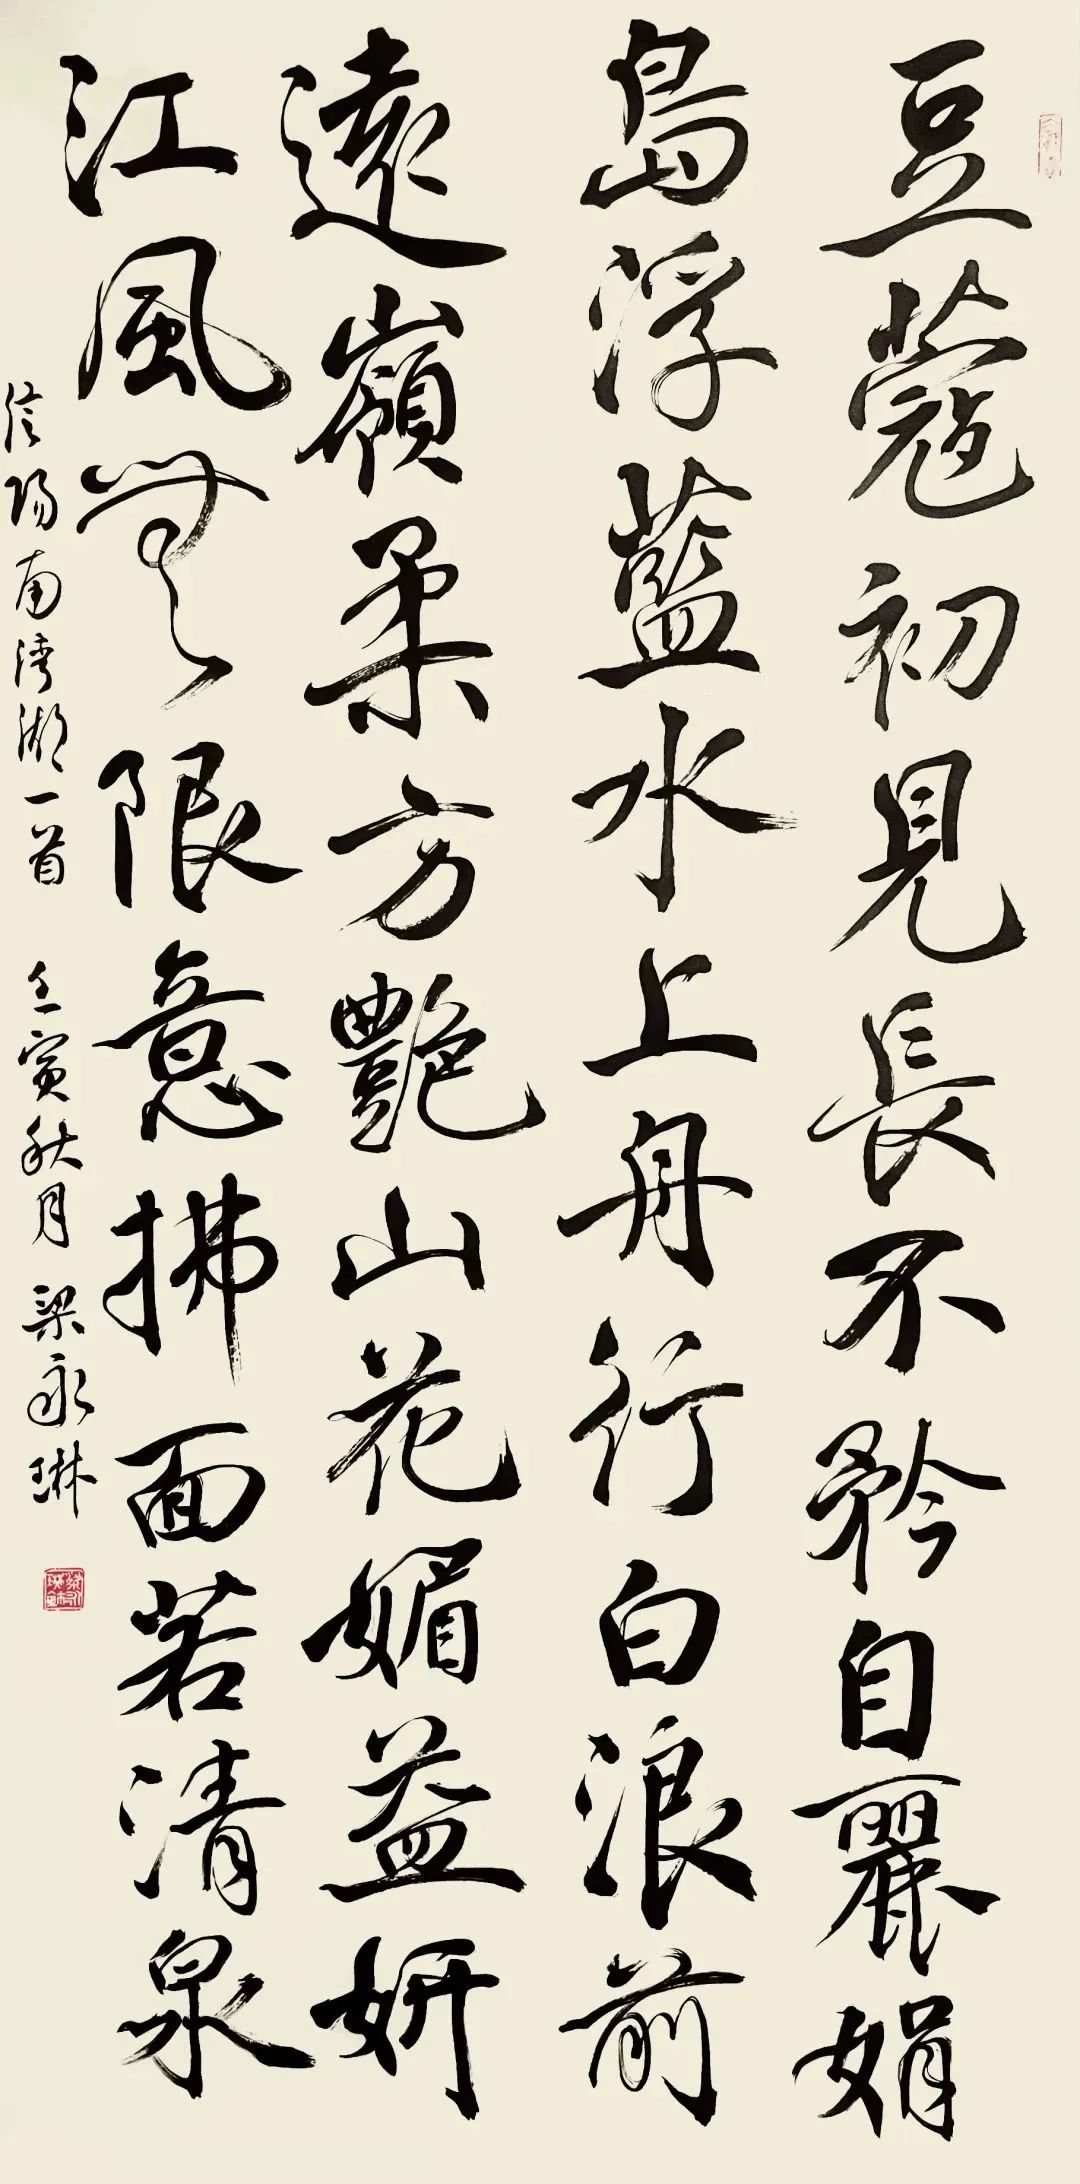 豆蔻初見長不矜自麗娟
島浮藍水上舟行白浪前
遠嶺柔方艶山花媚益妍
江風無限意拂面若清泉
信陽南灣湖一首 壬寅秋月 梁永琳